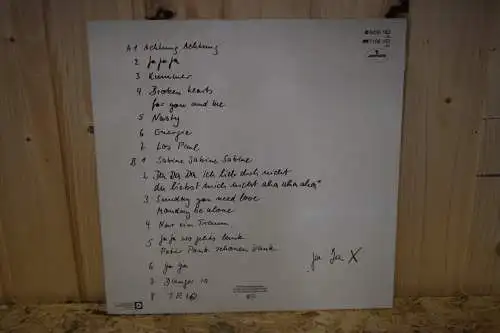 A1 Achtung Achtung
2 Ja Ja Ja
3 Kummer
4 Broken hearts
for you and me
5 Nasty
6 Energie
7 Los Paul
B 1 Sabine Sabine Sabine
2 Da Da Da ich lieb dich nicht
du liebst mich nicht aha aha aha
3 Sunday you need love
Monday be alone
4 Nur ein Traum
5 Ja Ja wo gehts lank
Peter Pank schönen Dank
6 Ja Ja
7 Danger is
8 TRIO
Ja Ja X